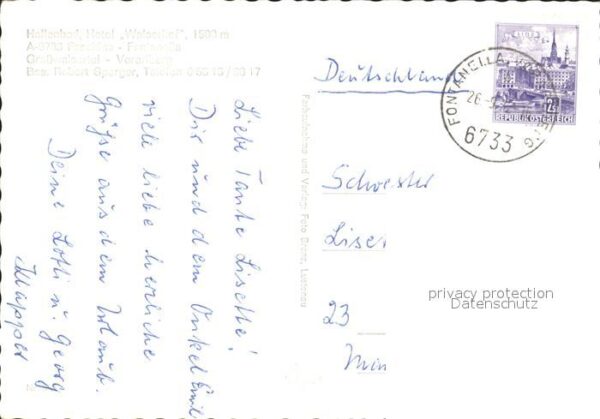 Hallenbad, Hotel „Walserhof", 1500 m
A-6733 Faschina - Fontanella
Großwalsertal - Vorarlberg
Bes. Robert Sperger, Telefon
Liebe Tante Lisette!
Dir und dem Onkel Emil
viele liebe herzliche
Grüße aus dem Urlaub.
Deine Lotti u. Georg
Klapper
Farbaufnahme und Verlag: Foto Branz, Lustenau
Deutschland
WIEN
2S
REPUBLIK ÖSTERREICH
FONTANELLA
6733
Schwester
Liser
23
privacy protection
Datenschutz